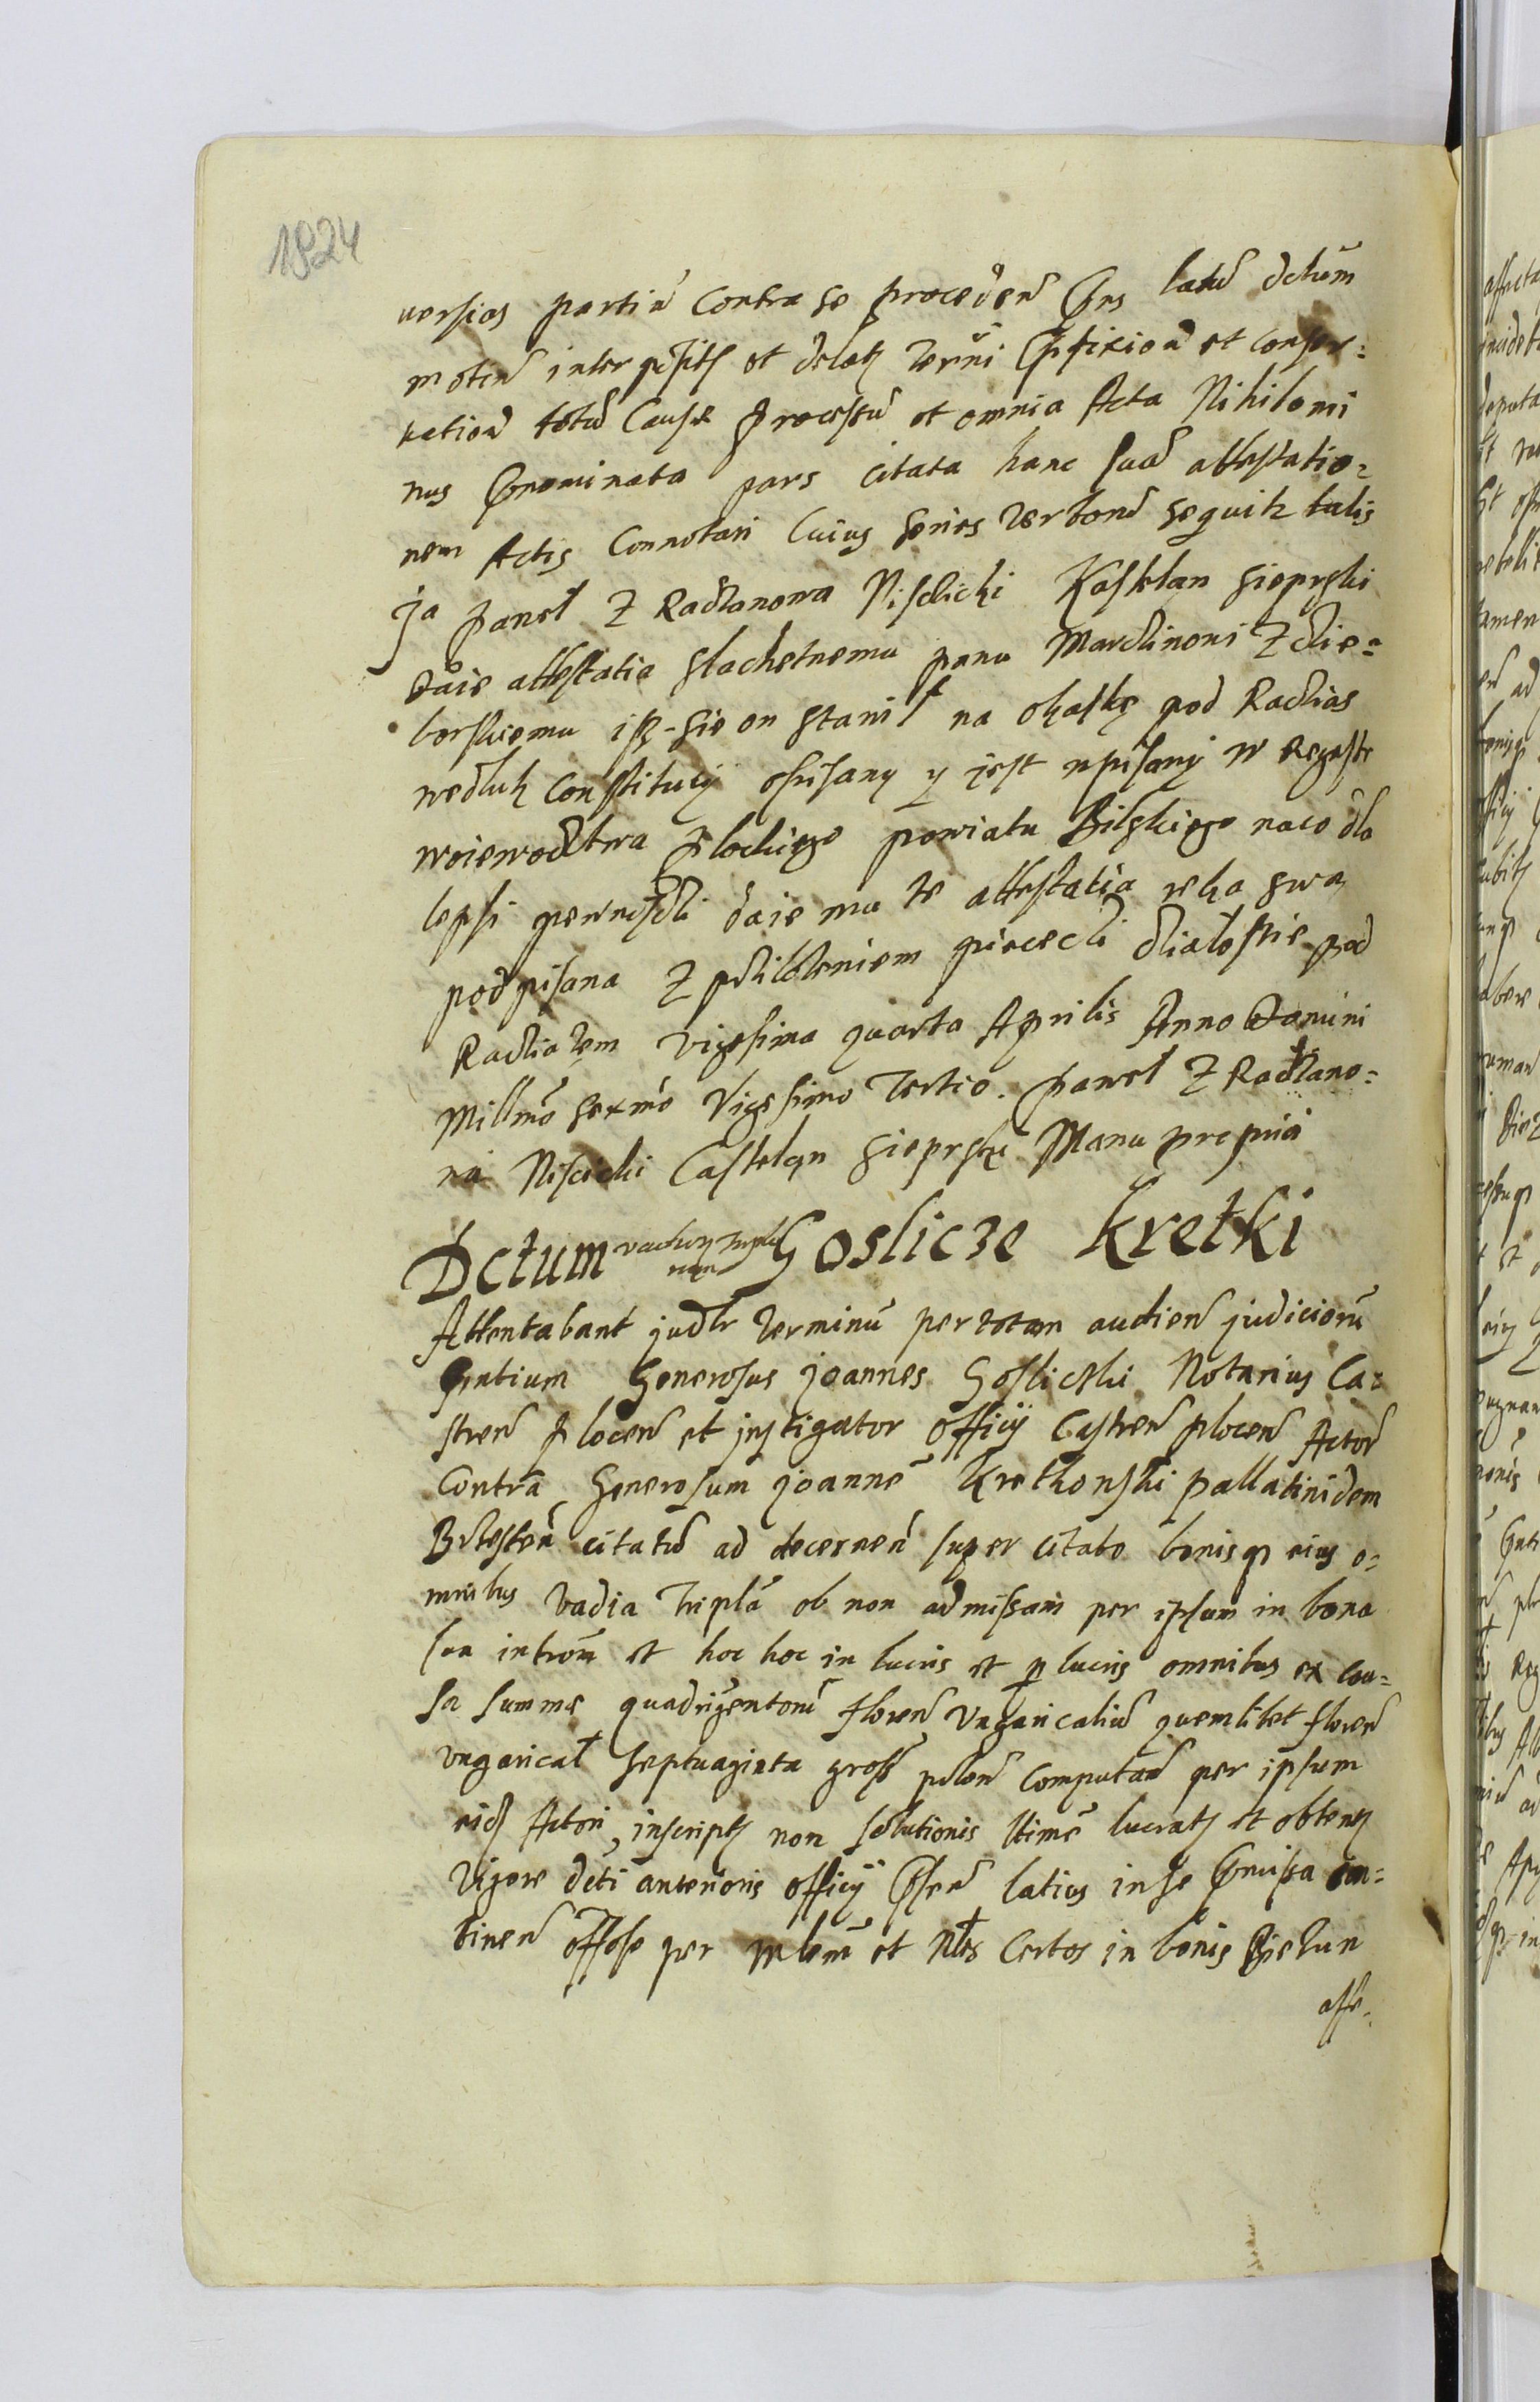 1824
uersias partiū Contra se proceden̄ Pns latū dctūm
moten̄ interpositʒ et delatʒ Termi Pfixion̄ et Conser=
uation̄ totū Causæ Processū et omnia Acta Nihilomi
nus Pnominata pars Citata hanc suā attestatio=
nem Actis Connotari Cuius series Verborū sequitʒ talis
Ja Paweł Z Radzanowa Nisczicki Kasztelan Sieprski
Daie attestatia slachetnemu panu Marczinowi Zdie=
borskiemu isz-sie on stanił na okaskę pod Raczias
wedluk Constituciy opisany y iest wpisany w Regestr
woiewodztwa Plockiego powiatu Bilskiego naco dla
lepsi pewnosczi daie mu te attestatia reka swa
podpisana Z prziloseniem piececzi dzialo sie pod
Racziazem vigesima quarta Aprilis Anno Domini
Millmō sexmō Vigesimo Tertio. Paweł Z Radzano=
wa Niscicki Castelan Sieprsky Manu propria
Dctum Goslicze Kretki
Attentabant judr Terminū per totam audien̄ judiciorū
Pntium Generosus Joannes Goslicki Notarius Ca=
stren̄ Plocen̄ et instigator officÿ Castren̄ plocen̄ Actor̄
Contrā Generosum Joannē Krethowski pallatinidem
Brzesten̄ citatū ad decernen̄ super citato bonisqʒ eius o=
mnibus Vadia Triplā ob non admissam per ipsum in bona
sua introm̄ et hoc hoc in lucris et p lucris omnibus ex Cau=
sa summæ quadrigentorū floren̄ Vngaricaliū quemlibet floren̄
Vngarical Septuaginta gross̄ polon̄ Computan̄ per ipsum
eidʒ Actori inscriptʒ non solutionis ltimē lucratʒ et obtentʒ
Vigore dcti anterioris officÿ Psen̄ latius in se Pmissa con=
tinen̄ offose per mlem̄ et Nbles Certos in bonis Biezun
affe=